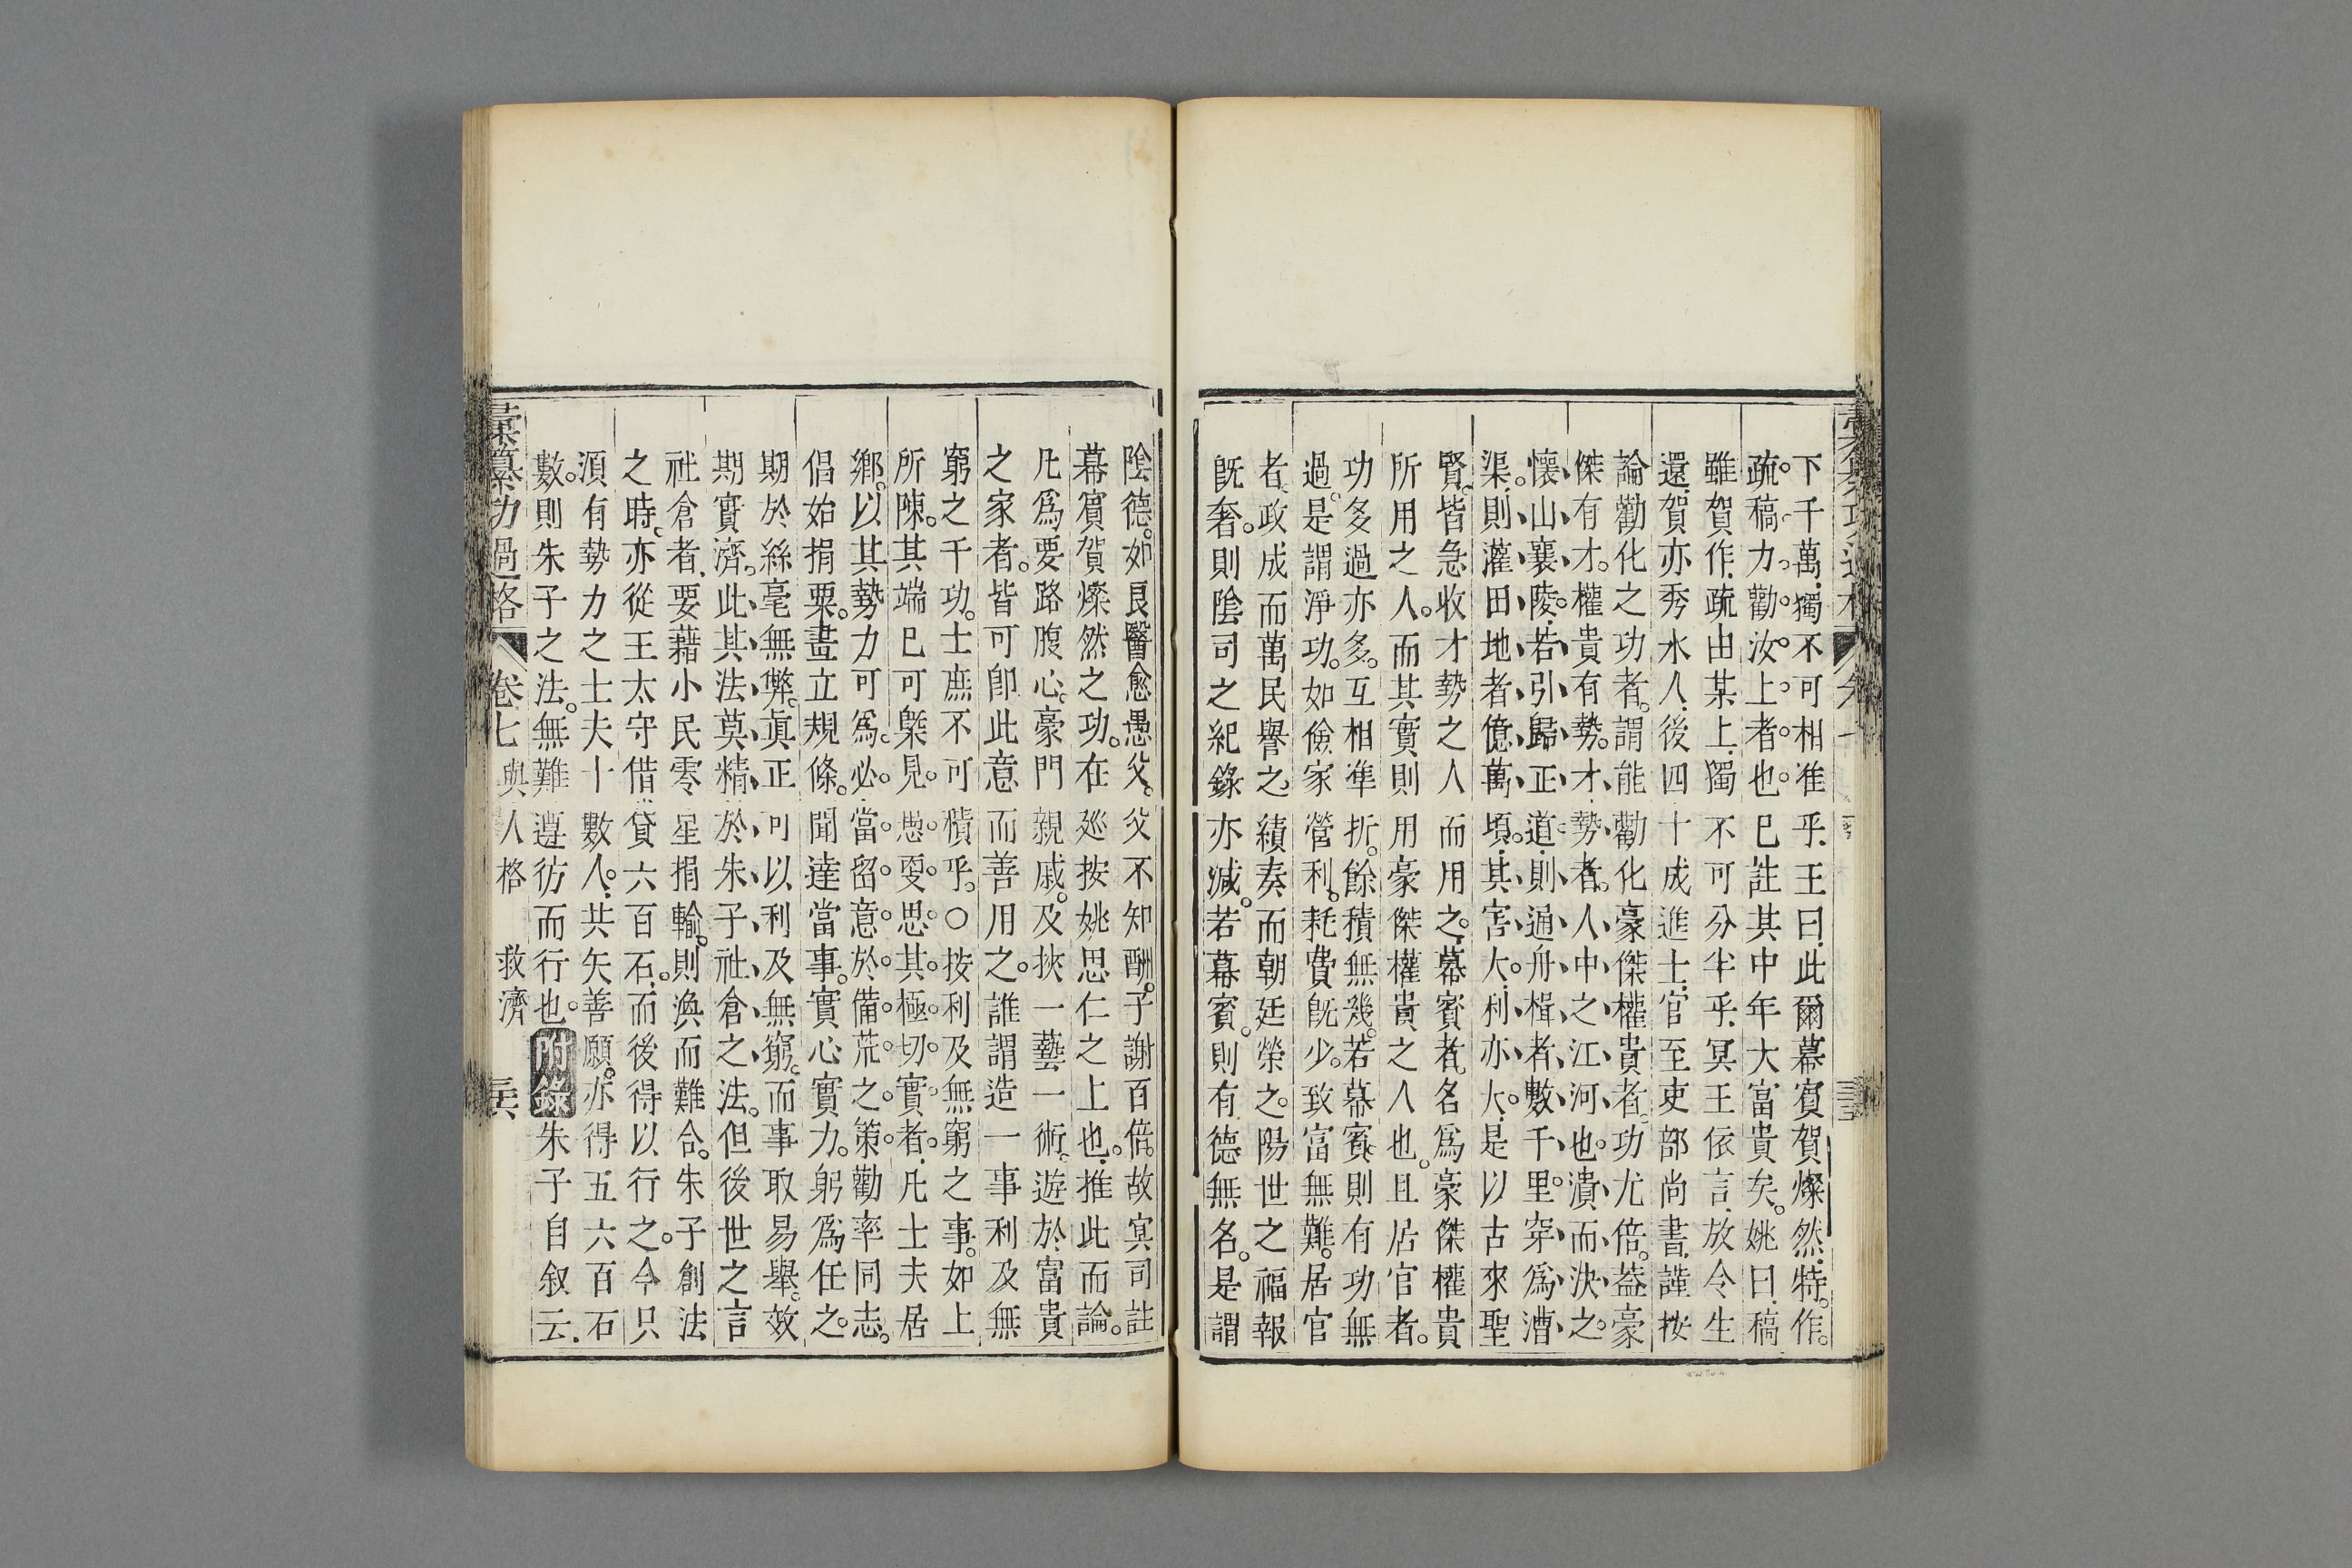 下千萬獨不可相准乎王曰此爾幕賓賀燦然特作
疏稿力勸汝上者也已註其中年大富貴矣姚曰稿
雖賀作疏由某上獨不可分半乎冥王依言放令生
還賀亦秀水人後四十成進士官至吏部尚書謹按
論勸化之功者謂能勸化豪傑權貴者功尤倍葢豪
傑有才權貴有勢才勢者人中之江河也潰而決之
懷山襄陵若引歸正道則通舟楫者數千里穿爲漕
渠則灌田地者億萬頃其害大利亦大是以古來聖
賢皆急收才勢之人而用之幕賓者名爲豪傑權貴
所用之人而其實則用豪傑權貴之人也且居官者
功多過亦多互相準折餘積無幾若幕賓則有功無
過是謂淨功如儉家營利耗費旣少致富無難居官
者政成而萬民譽之績奏而朝廷榮之陽世之福報
旣奢則陰司之紀錄亦減若幕賓則有德無名是謂
陰德如良醫愈愚父父不知酬子謝百倍故冥司註
幕賓賀燦然之功在廵按姚思仁之上也推此而論
凡爲要路腹心豪門親戚及挾一藝一術遊於富貴
之家者皆可卽此意而善用之誰謂造一事利及無
窮之千功士庶不可積乎○按利及無窮之事如上
所陳其端已可槩見思思其極切實者凡士夫居
鄉以其勢力可爲必當留意於備荒之策勸率同志
倡始捐粟畫立規條聞達當事實心實力躬爲任之
期於絲毫無弊眞正可以利及無窮而事取易舉效
期實濟此其法莫精於朱子社倉之法但後世之言
社倉者要藉小民零星捐輸則渙而難合朱子創法
之時亦從王太守借貸六百石而後得以行之今只
須有勢力之士夫十數人共矢善願亦得五六百石
數則朱子之法無難遵彷而行也附錄朱子自叙云
彙纂功過格 卷七 與人格 救濟 三六